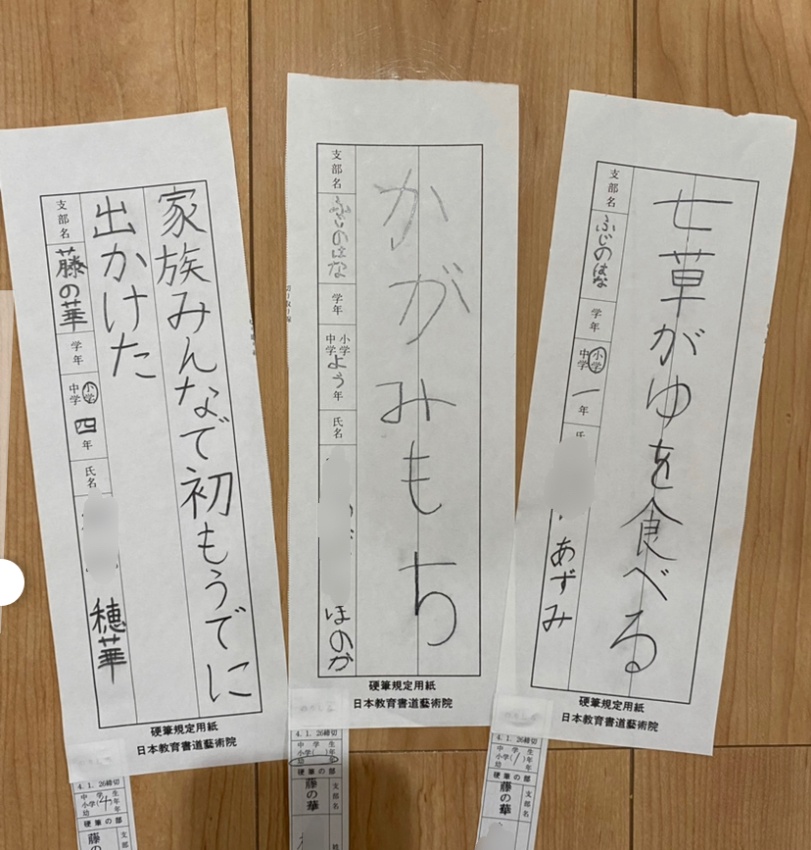 七草がゆを食べる
支部名 ふじのはな 学年 小学 中学 一年
あずみ
硬筆規定用紙
日本教育書道藝術院
4. 1. 26締切
中学生
小学(1)年
幼
硬筆の部
支部名
藤の華
かがみもち
支部名 ふじのはな 学年 小学 中学 よう年 氏名
ほのか
硬筆規定用紙
日本教育書道藝術院
4. 1. 26締切
中学生
小学( )年
幼
硬筆の部
支部名
藤の華
家族みんなで初もうでに
出かけた
支部名 藤の華 学年 小学 中学 四年 氏名
穂華
硬筆規定用紙
日本教育書道藝術院
4. 1. 26締切
中学生
小学(4)年
幼年
硬筆の部
支部
藤の